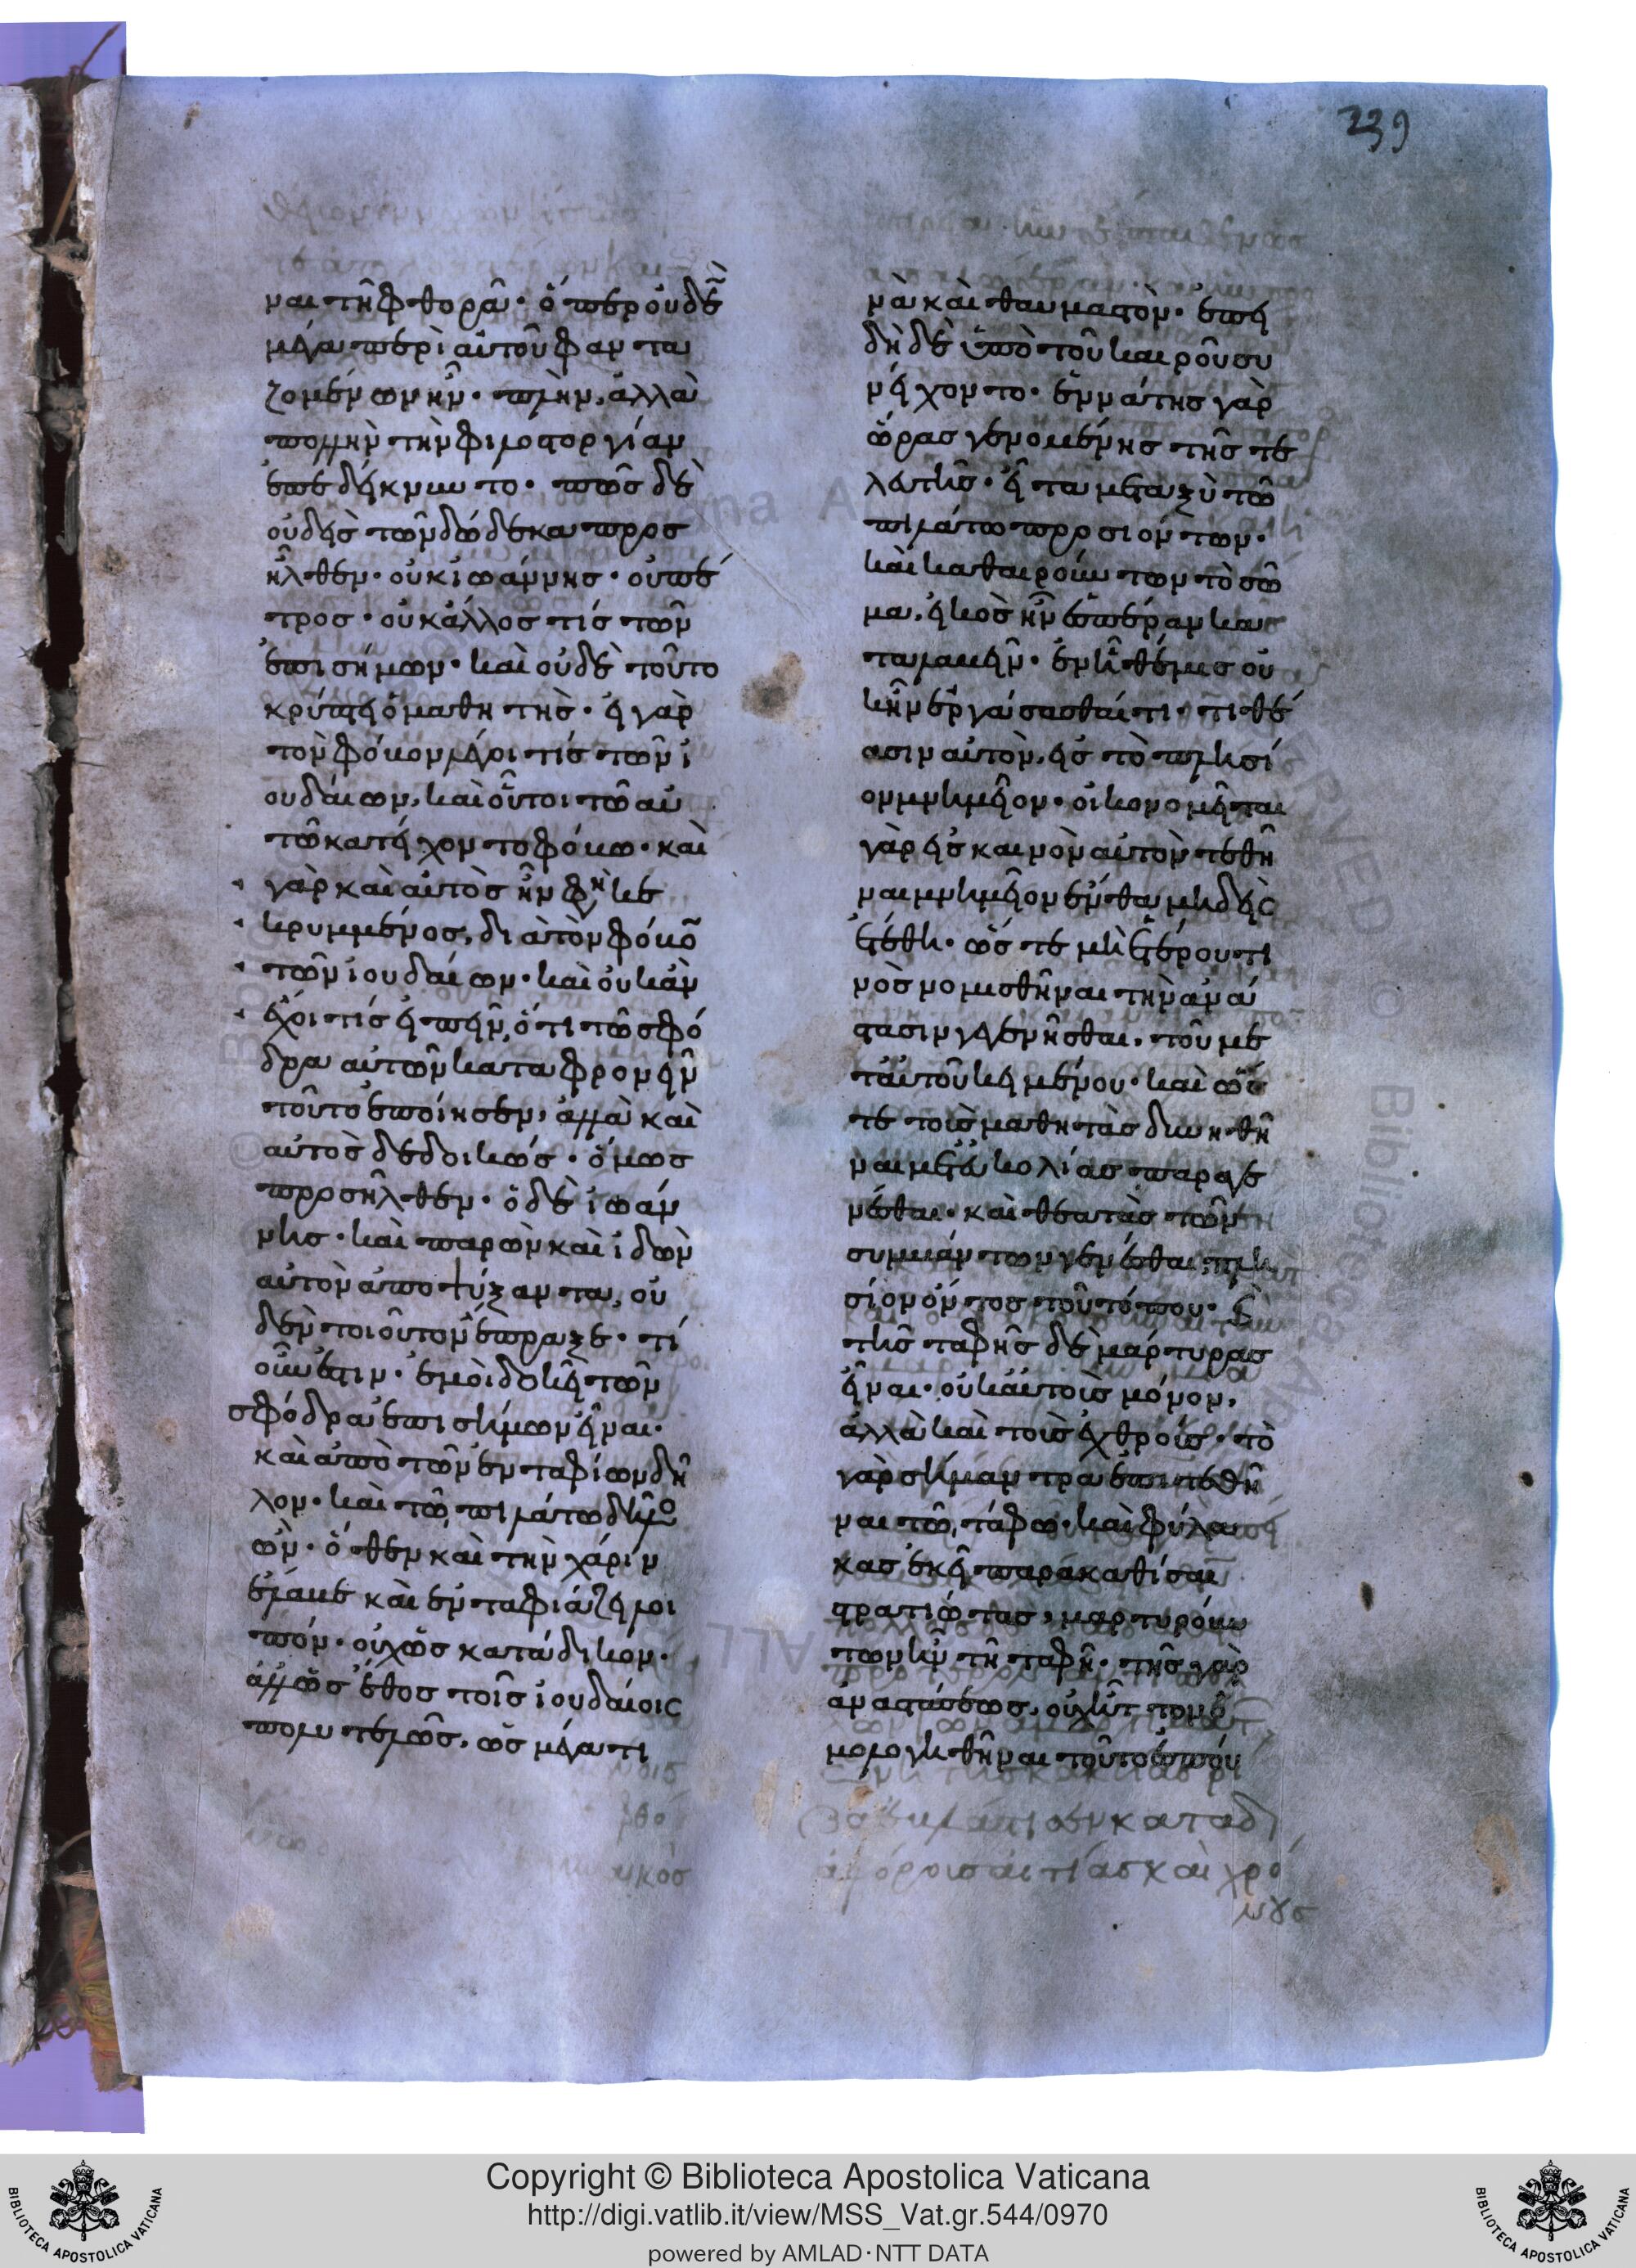 239
ναι τῆ φθορᾶ· ὅπερ οὐδὲν
μέγα περὶ αὐτοῦ φαντα
ζομένων ἦν· πλὴν, ἀλλὰ
πολλὴν τὴν φιλοστοργίαν
ἐπεδείκνυντο· πῶς δὲ
οὐδεὶς τῶν δώδεκα προσ
ῆλθεν· οὐκ ἰωάννης· οὐ πέ
τρος· οὐκ ἄλλος τίς τῶν
ἐπισήμων· καὶ οὐδὲ τοῦτο
κρύπτει ὁ μαθητὴς· εἰ γὰρ
τὸν φόβον λέγοι τίς τῶν ἰ
ουδαίων, καὶ οὗτοι τῶ αὐ
τῶ κατείχοντο φόβω· καὶ
γὰρ καὶ αὐτὸς ἦν φησὶ κε
κρυμμένος, διὰ τὸν φόβον
τῶν ἰουδαίων· καὶ οὐκ ἂν
ἔχοι τίς εἰπεῖν, ὅτι τῶ σφό
δρα αὐτῶν καταφρονεῖν
τοῦτο ἐποίησεν, ἀλλὰ καὶ
αὐτὸς δεδοικώς· ὅμως
προσῆλθεν· ὁ δὲ ἰωάν
νης· καὶ παρὼν καὶ ἰδὼν
αὐτὸν ἀποψύξαντα, οὐ
δὲν τοιοῦτον ἔπραξε· τί
οὖν ἐστιν· ἐμοὶ δοκεῖ τῶν
σφόδρα ἐπισήμων εἶναι·
καὶ ἀπὸ τῶν ἐνταφίων δῆ
λον· καὶ τῶ πιλάτω δῆλος
ὢν· ὅθεν καὶ τὴν χάριν
ἔλαβε καὶ ἐνταφιάζει λοι
πόν· οὐχ ὡς κατάδικον·
ἀλλ' ὡς ἔθος τοῖς ἰουδαίοις
πολυτελῶς, ὡς μέγα τι
νὰ καὶ θαυμαστὸν· ἐπει
δὴ δὲ ὑπὸ τοῦ καιροῦ συ
νείχοντο· ἐννάτης γὰρ
ὥρας γενομένης τῆς τε
λευτῆς· εἶτα μεταξὺ τῶ
πιλάτω προσιόντων·
καὶ καθαιρούντων τὸ σῶ
μα, εἰκὸς ἦν ἑσπέραν κα
ταλαβεῖν· ἐν ἧ θέμις οὐ
κ ἦν ἐργάσασθαί τι· τιθέ
ασιν αὐτὸν, εἰς τὸ πλησί
ον μνημεῖον· οἰκονομεῖται
γὰρ εἰς καινὸν αὐτὸν τεθῆ
ναι μνημεῖον ἔνθα μηδεὶς
ἐτέθη· ὥστε μὴ ἑτέρου τι
νὸς νομισθῆναι τὴν ἀνά
στασιν γεγενῆσθαι, τοῦ με
τ' αὐτοῦ κειμένου· καὶ ὥσ
τε τοὺς μαθητὰς δυνηθῆ
ναι μετ' εὐκολίας παραγε
νέσθαι· καὶ θεατὰς τῶν
συμβάντων γενέσθαι, πλη
σίον ὄντος τοῦ τόπου· καὶ
τῆς ταφῆς δὲ μάρτυρας
εἶναι· οὐκ αὐτοὺς μόνον,
ἀλλὰ καὶ τοὺς ἐχθρούς· τὸ
γὰρ σήμαντρα ἐπιτεθῆ
ναι τῶ τάφω· καὶ φύλα
κας ἐκεῖ παρακαθίσαι
στρατιώτας, μαρτυρούν
των ἦν τῆ ταφῆ· τῆς γὰρ
ἀναστάσεως, οὐχ ἧττον ὁ
μολογηθῆναι τοῦτο ἐσπού
Copyright © Biblioteca Apostolica Vaticana
http://digi.vatlib.it/view/MSS_Vat.gr.544/0970
powered by AMLAD·NTT DATA
BIBLIOTECA APOSTOLICA VATICANA
BIBLIOTECA APOSTOLICA VATICANA